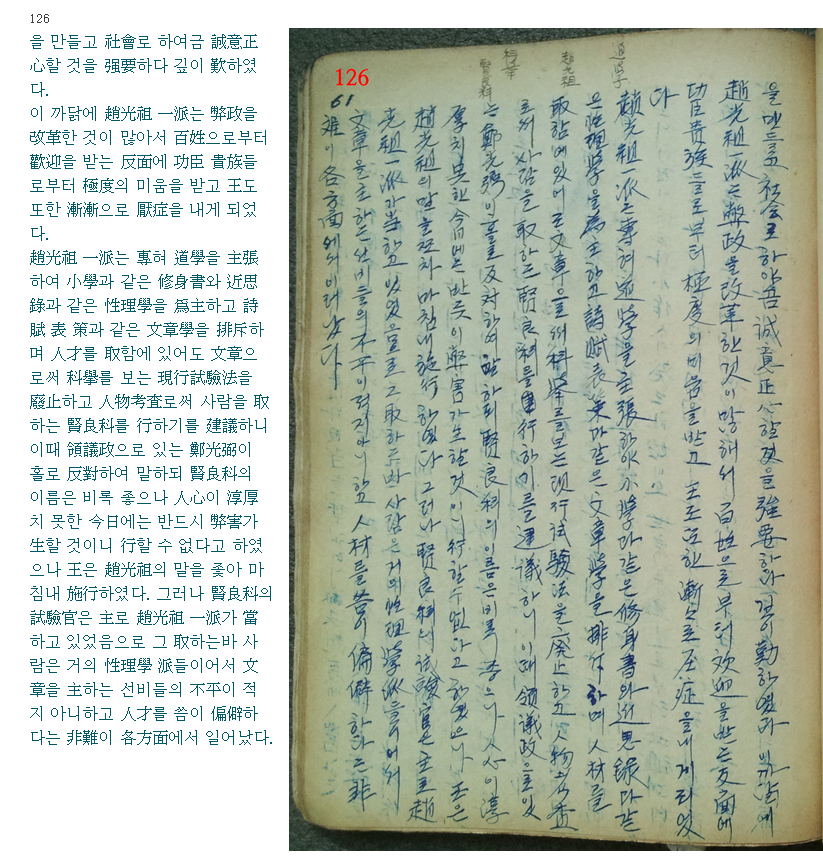 126
을 만들고 社會로 하여금 誠意正
心할 것을 强要하다 깊이 歎하였
다.
이 까닭에 趙光祖 一派는 弊政을
改革한 것이 많아서 百姓으로부터
歡迎을 받는 反面에 功臣 貴族들
로부터 極度의 미움을 받고 王도
또한 漸漸으로 厭症을 내게 되었
다.
趙光祖 一派는 專혀 道學을 主張
하여 小學과 같은 修身書와 近思
錄과 같은 性理學을 爲主하고 詩
賦 表 策과 같은 文章學을 排斥하
며 人才를 取함에 있어도 文章으
로써 科擧를 보는 現行試驗法을
廢止하고 人物考査로써 사람을 取
하는 賢良科를 行하기를 建議하니
이때 領議政으로 있는 鄭光弼이
홀로 反對하여 말하되 賢良科의
이름은 비록 좋으나 人心이 淳厚
치 못한 今日에는 반드시 弊害가
生할 것이니 行할 수 없다고 하였
으나 王은 趙光祖의 말을 좇아 마
침내 施行하였다. 그러나 賢良科의
試驗官은 主로 趙光祖 一派가 當
하고 있었음으로 그 取하는바 사
람은 거의 性理學 派들이어서 文
章을 主하는 선비들의 不平이 적
지 아니하고 人才를 씀이 偏僻하
다는 非難이 各方面에서 일어났다.
126
61
道學
趙光祖
賢良科
을 만드른고 社会로 하야금 誠意正心할것을 强要하다 깊이 勤하였다 이까닭에
趙光祖一派는 弊政을 改革한것이 많해서 百姓으로부터 欢迎을받는 反面에
功臣貴族들로부터 極度의 미움을받고 王도또한 漸々로 厌症을내게 되엿
다
趙光祖一派는 專혀 道學을 主張하야 小學과같은 修身書와 近思録과같
은 性理學을 爲主하고 詩賦表策과같은 文章學을 排斥하며 人材를
取함에있어도 文章으로써 科擧를보는 現行試驗法을 廃止하고 人物考査
로써 사람을 取하는 賢良科를 行하기를 建議하니 이때 領議政으로있
는 鄭光弼이 홀로 反対하여 말하되 賢良科의 이름은 비록 좋으나 人心이 淳
厚치 못한 今日에는 반듯이 弊害가 生할것이니 行할수 없다고 하였으나 王은
趙光祖의 말을 좇차 마침내 施行하였다 그러나 賢良科의 試驗官은 主로 趙
光祖一派가 當하고 있었음으로 그 取하는바 사람은 거의 性理學派들이어서
文章을 主하는 선비들의 不平이 적지아니하고 人材를 씀이 偏僻하다는 非
難이 各方面에서 이러났다